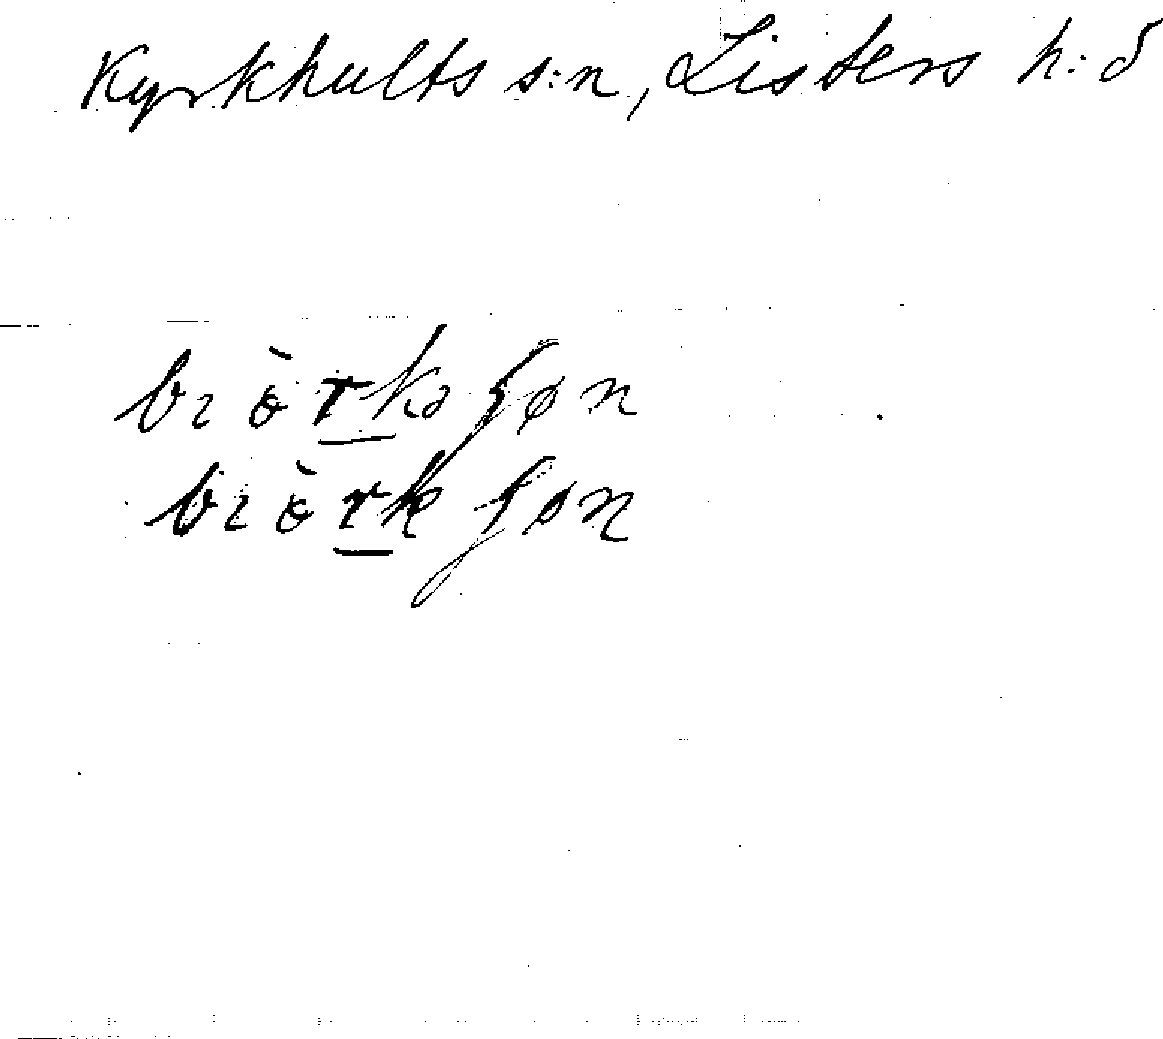 Kyrkhults s:n, Listers h:d
bıòrkəʃøn
bıòrkʃøn